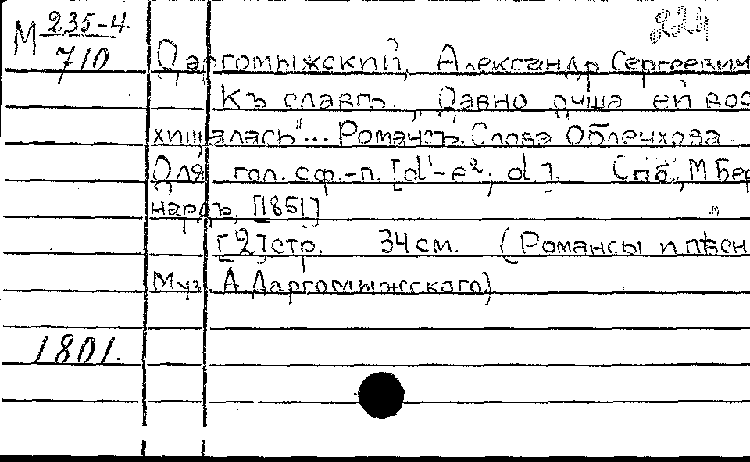 М 235-4
710
224
Даргомыжский, Александр Сергеевич
Къ славѣ. „Давно душа ей вос
хищалась"... Романсъ. Слова Облеухова.
Для гол. с ф.-п. [d¹-e²; d]. Спб., М. Бер
нардъ, [1851]
[2] стр. 34 см. (Романсы и пѣсн
Муз. А. Даргомыжского)
1801.